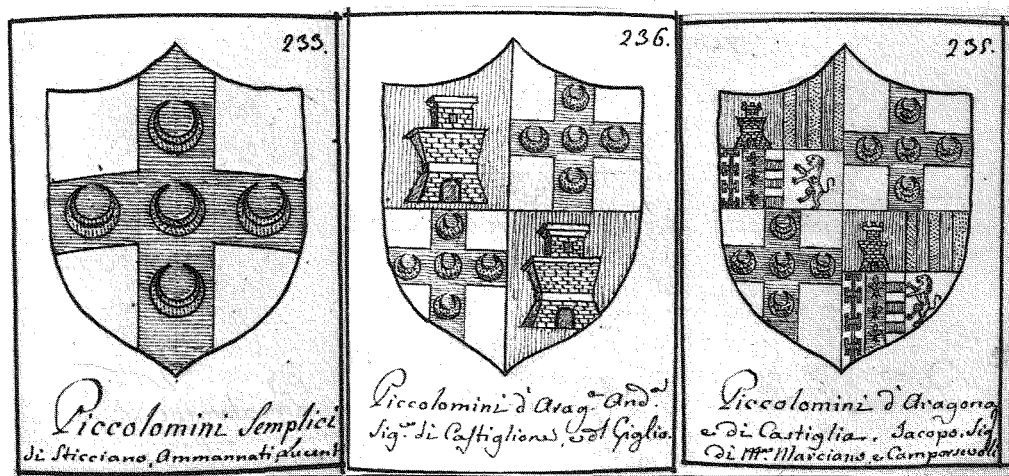 233.
Piccolomini Semplici
di Sticciano, Ammannati,
236.
Piccolomini d'Arag.ª And.ª
Sig.re di Castiglione, e del Giglio.
235.
Piccolomini d'Aragona
e di Castiglia. Jacopo, Sig.
di M.te Marciano, e Camporsevoli